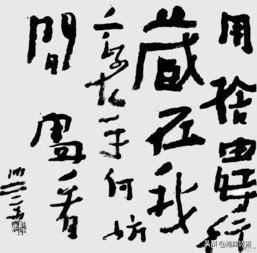 用捨由時行
藏在我
手何妨
間處看
头条